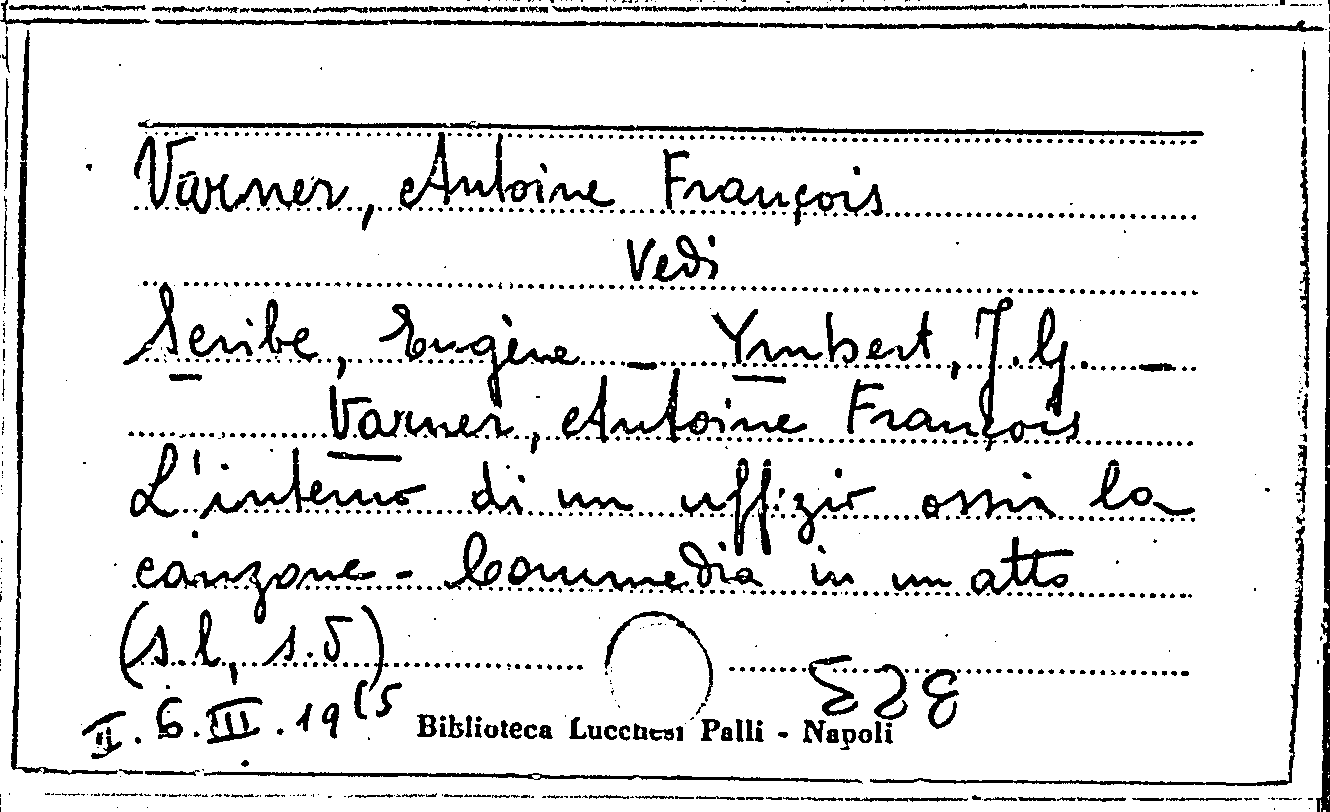 Varner, Antoine François
Vedi
Scribe, Eugène – Ymbert, J. G. –
Varner, Antoine François
L'interno di un uffizio ossia la
canzone - Commedia in un atto
(s.l, s.d)
528
II. 6. III. 19 (5
Biblioteca Lucchesi Palli - Napoli